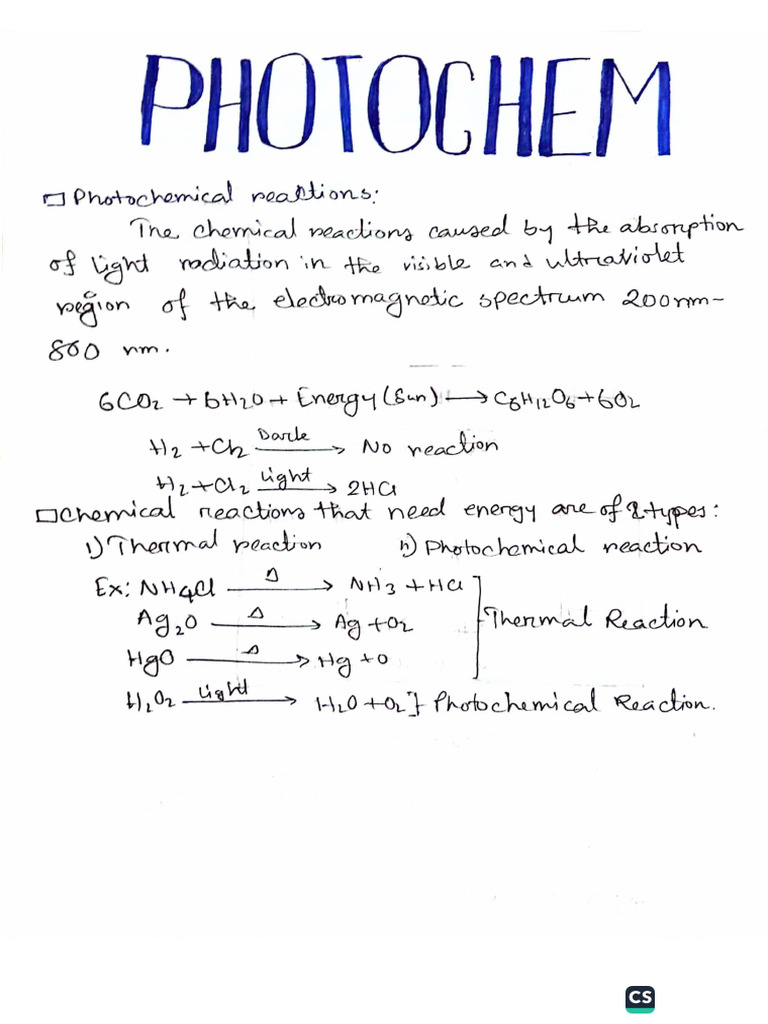 PHOTOCHEM
□ Photochemical reactions:
The chemical reactions caused by the absorption
of light radiation in the visible and ultraviolet
region of the electromagnetic spectrum 200nm-
800 nm.
6CO₂ + 6H₂O + Energy (Sun) ⟶ C₆H₁₂O₆ + 6O₂
H₂ + Cl₂ Dark ⟶ No reaction
H₂ + Cl₂ Light ⟶ 2HCl
□ Chemical reactions that need energy are of 2 types:
1) Thermal reaction 2) Photochemical reaction
Ex: NH₄Cl Δ ⟶ NH₃ + HCl
Ag₂O Δ ⟶ Ag + O₂ Thermal Reaction
HgO Δ ⟶ Hg + O
H₂O₂ Light ⟶ H₂O + O₂ } Photochemical Reaction.
CS